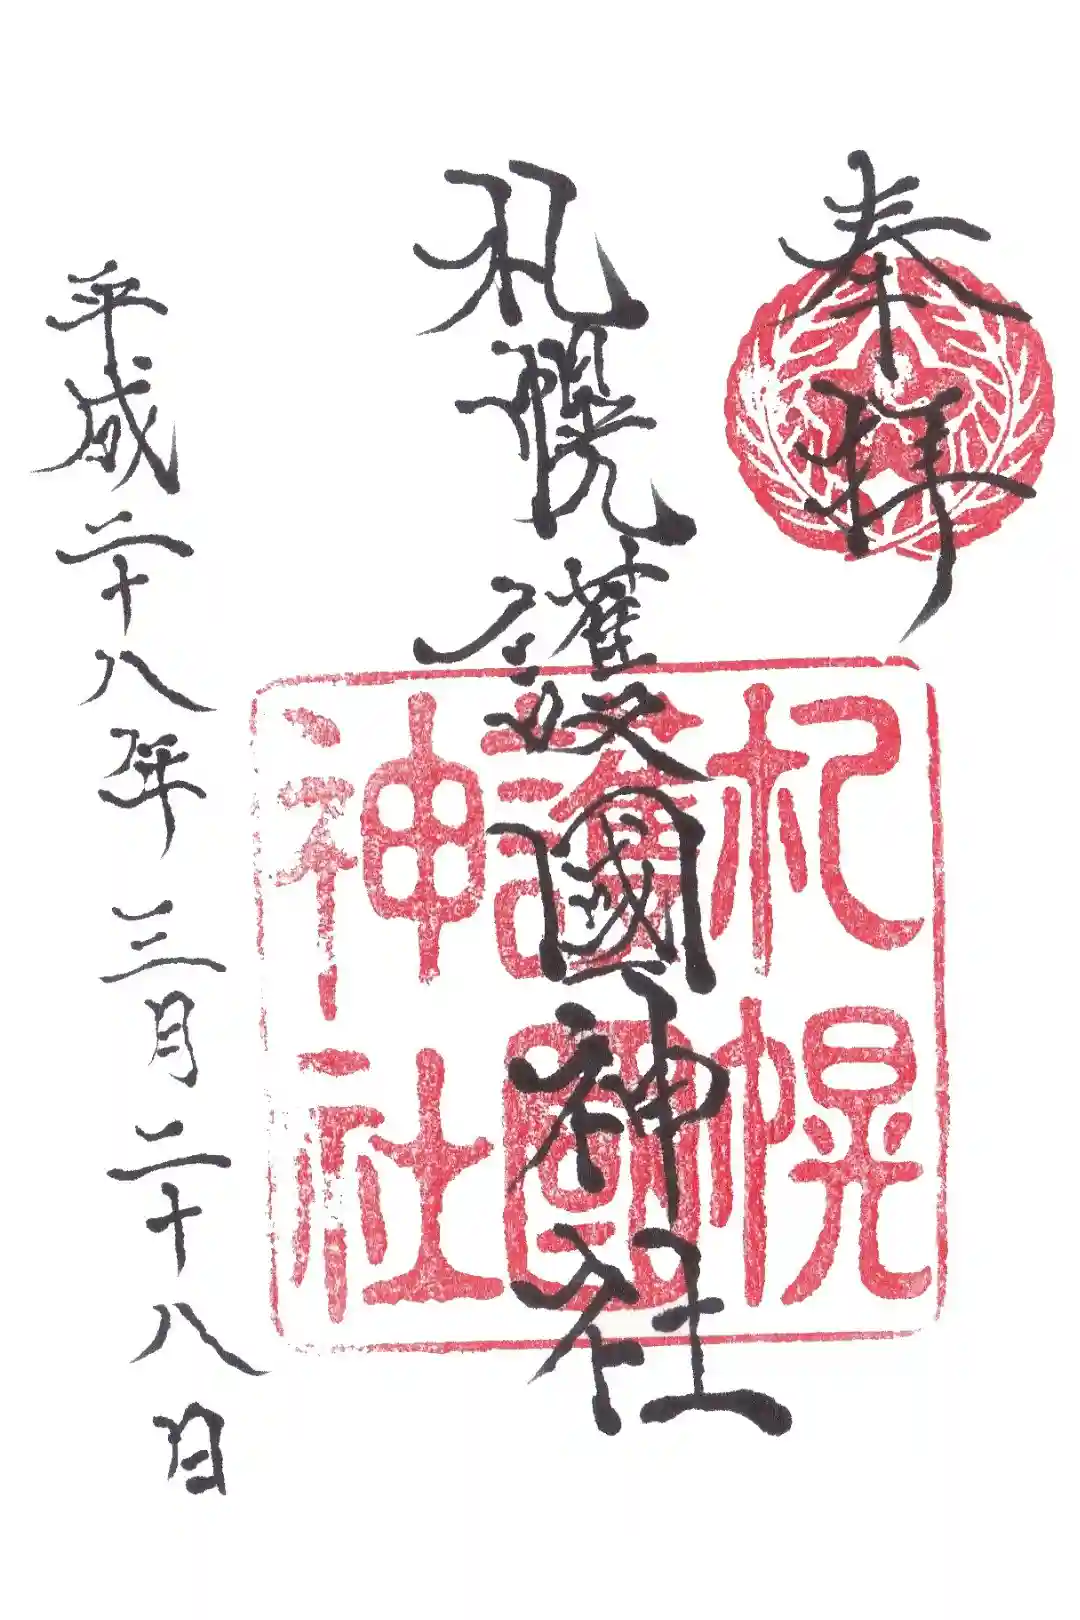 奉拝
札幌護國神社
札幌
護國
神社
平成二十八年三月二十八日